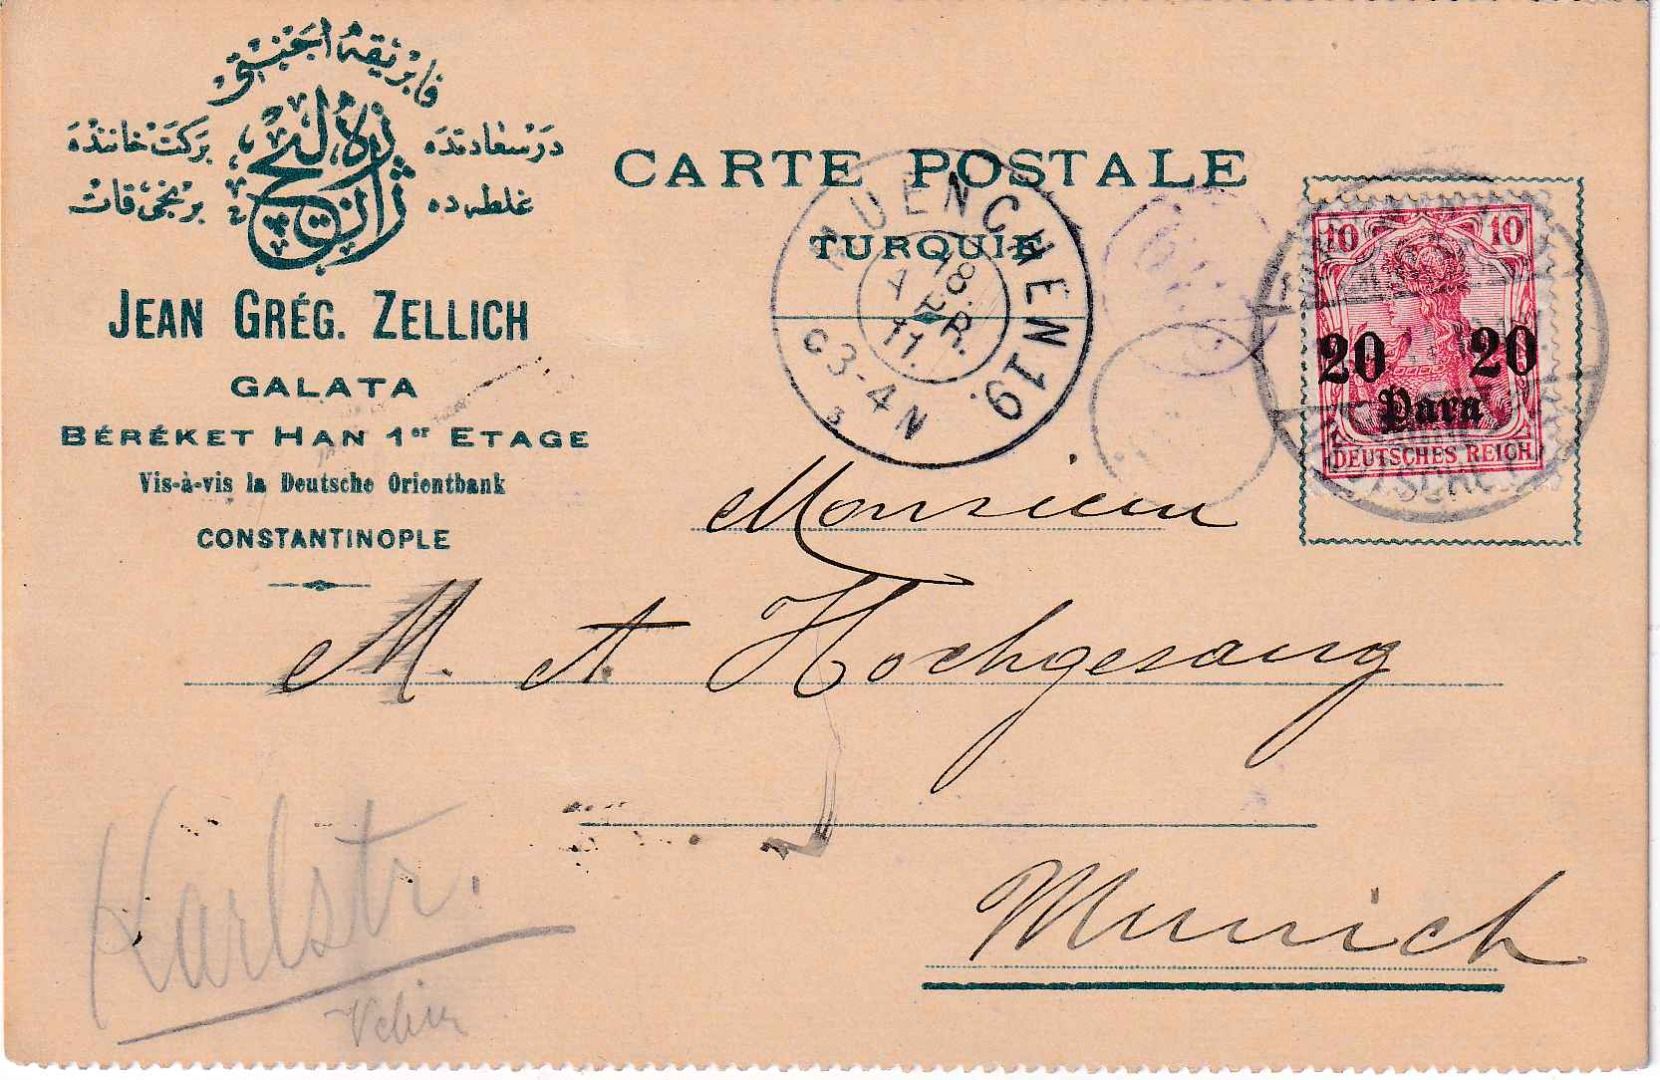 فابريقه اجنبتى
درسعادتده
بركت خاننده
غلطه ده
برنجى قات
ژان
JEAN GRÉG. ZELLICH
GALATA
BÉRÉKET HAN 1er ETAGE
Vis-à-vis la Deutsche Orientbank
CONSTANTINOPLE
CARTE POSTALE
TURQUIE
MUENCHEN 19.
18
APR.
11.
C 3-4 N
10 10
20 20
Para
DEUTSCHES REICH
DEUTSCHE
Monsieur
M. A. Hochgesang
Munich
Karlstr.